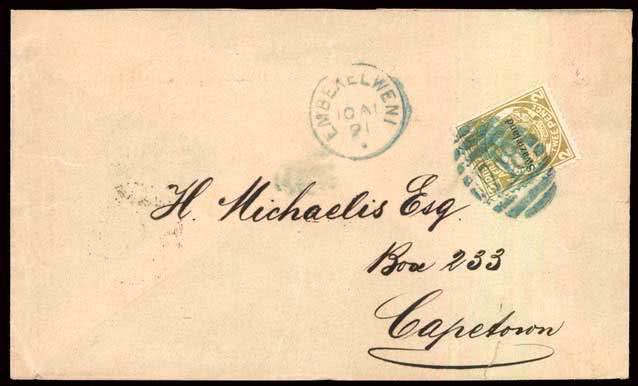 EMBEKELWENI
10 AI
91
TWEE PENCE
2
2
Swazieland
H. Michaelis Esq.
Box 233
Capetown